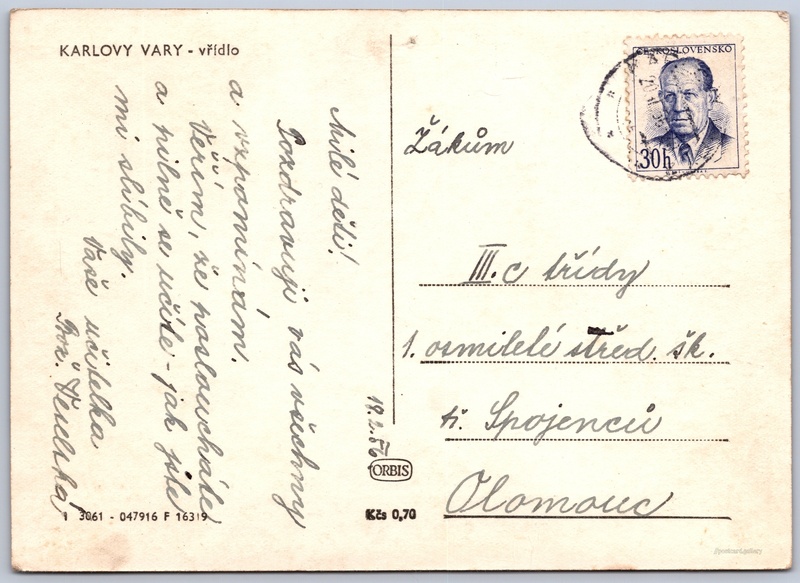 KARLOVY VARY - vřídlo
Milé děti!
Pozdravuji vás všechny
a vzpomínám.
Věřím, že posloucháte
a pilně se učíte - jak jste
mi slíbily.
Vaše učitelka
Bož.
19.2.56
ORBIS
Kčs 0,70
1 3061 - 047916 F 16319
ČESKOSLOVENSKO
30h
Žákům
III.c třídy
1. osmileté střed. šk.
tř. Spojenců
Olomouc